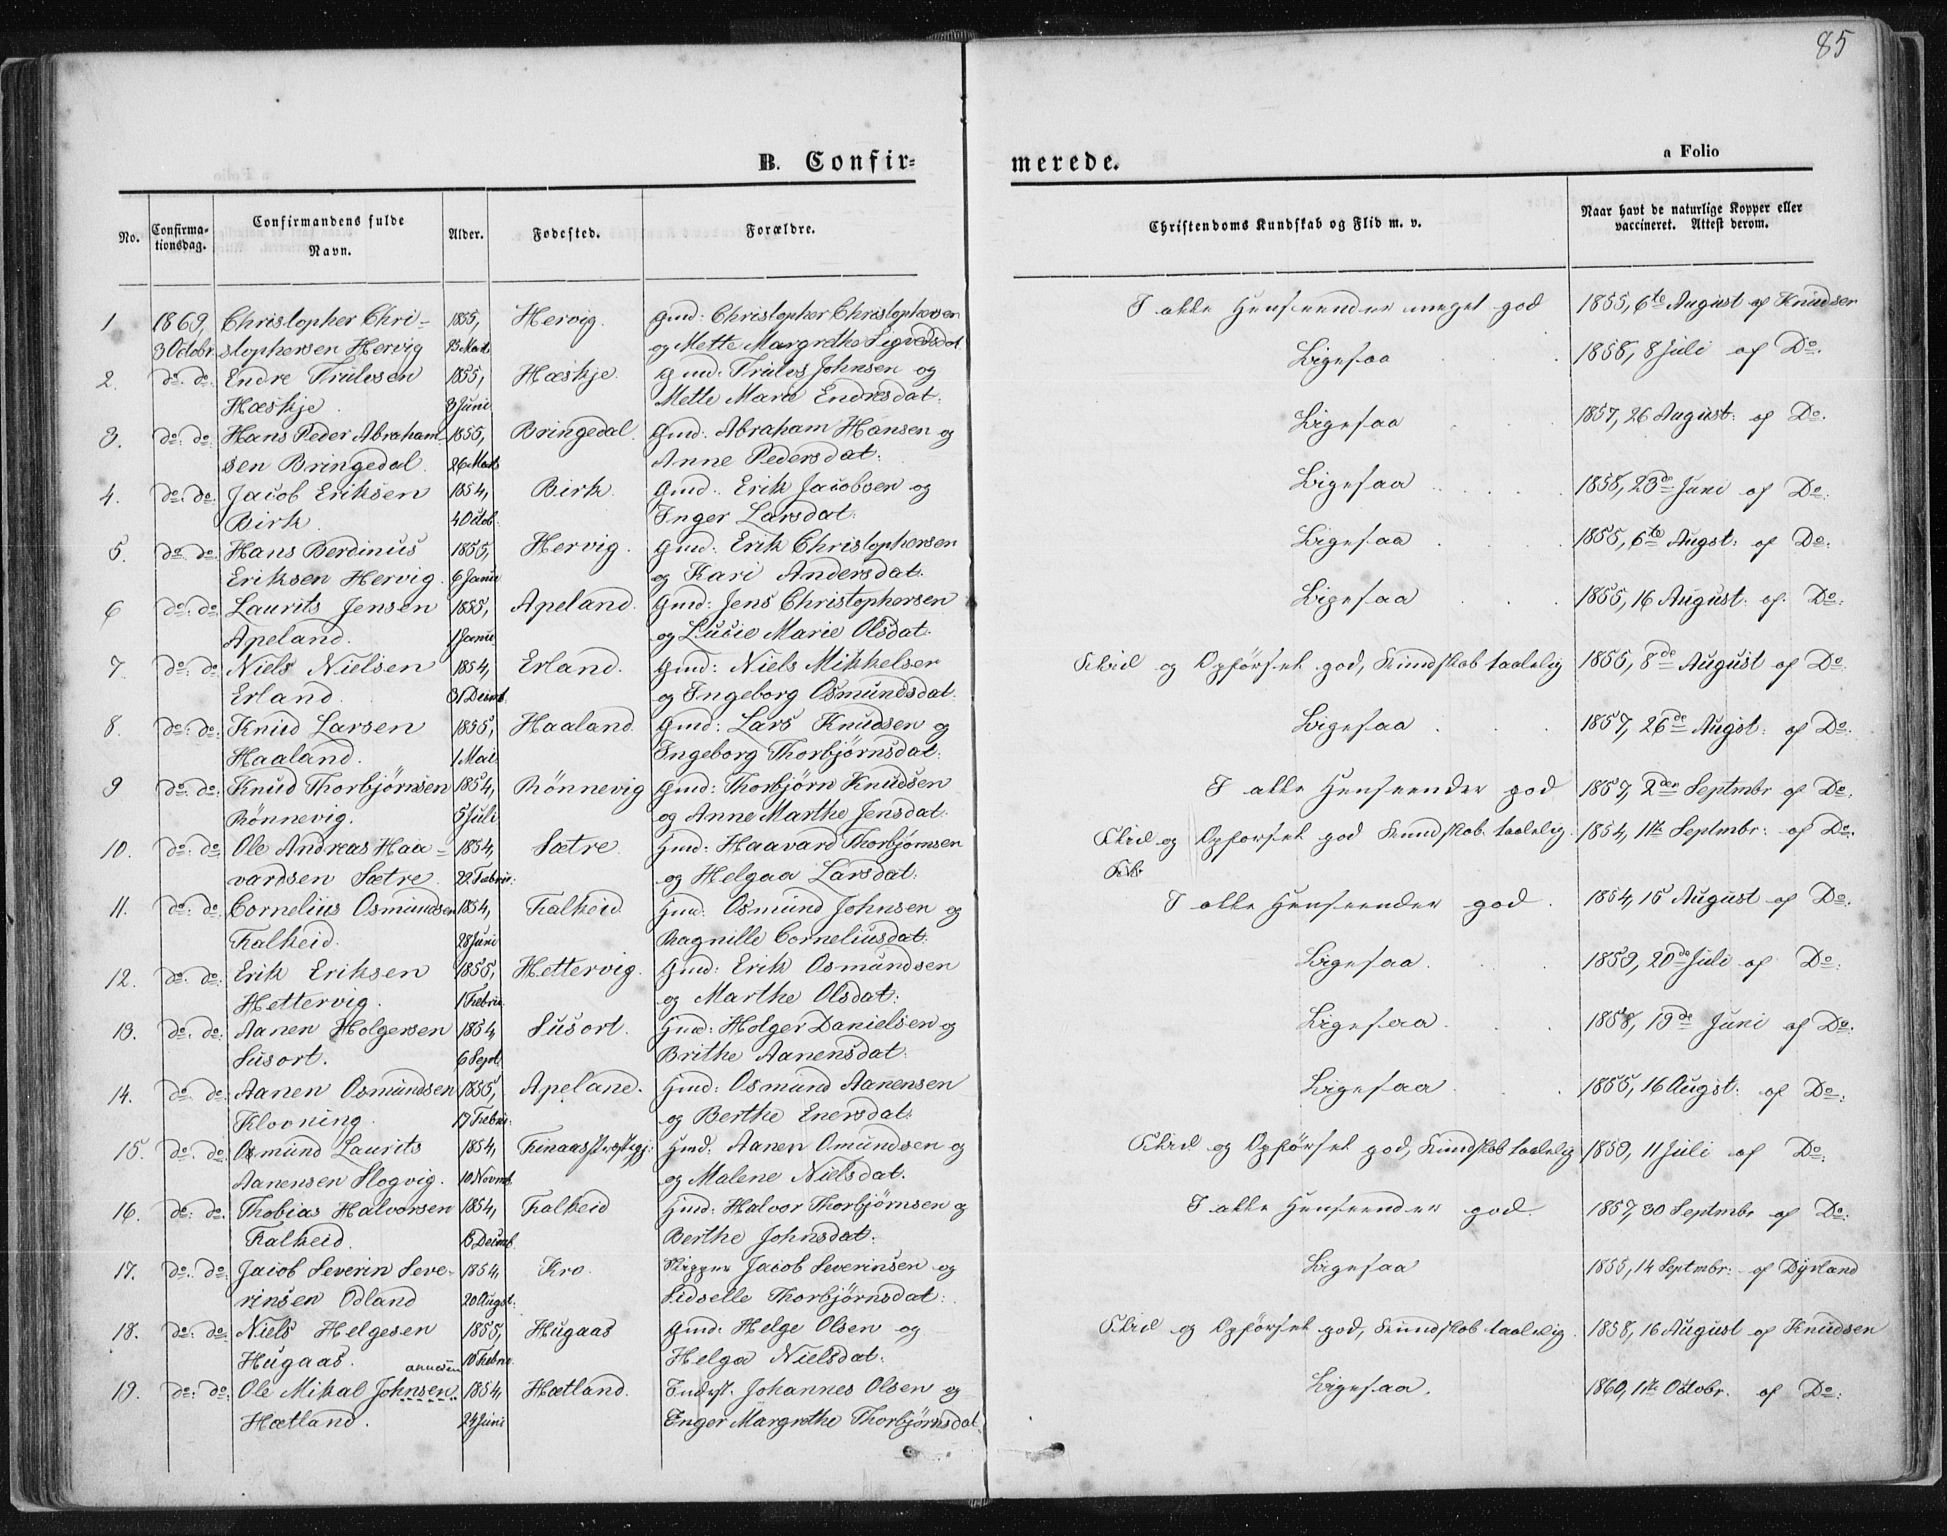 85
B. Confir=
merede.
a Folio
No.
Confirma-
tionsdag.
Confirmandens fulde
Navn.
Alder.
Fodested.
Forældre.
Christendoms Kundskab og Flid m. v.
Naar havt de naturlige Kopper eller
vaccineret. Attest derom.
1 1869, Christopher Chri- 1855, Hervig. Gmd: Christopher Christophersen I alle Henseender meget god 1855, 6te August af Knudsen
3 Octobr. stophersen Hervig og Mette Margrethe Sigvedsdat.
2. do. do. Endre Trulssen 1855, Hæskje Gmd: Truls Johnsen og Ligesaa 1858, 8 Juli af Do.
Hæskje. 3 Juni. Mette Mara Endresdat:
3. do. do. Hans Peder Abraham- 1855, Bringedal. Gmd: Abraham Hansen og Ligesaa 1857, 26 August: af Do.
sen Bringedal. 26 Marts Anne Pedersdat:
4. do. do. Jacob Eriksen 1854, Birk. Gmd: Erik Jacobsen og Ligesaa 1858, 23de Juni af Do:
Birk. 4 Octob. Inger Larsdat:
5. do. do Hans Berdinus 1855, Hervig. Gmd: Erik Christophersen Ligesaa 1855, 6te Augst: af Do:
Eriksen Hervig. 6 Janu og Kari Andersdat.
6 do: do Laurits Jensen 1855, Apeland. Gmd: Jens Christophersen Ligesaa 1855, 16 August. af. Do:
Apeland. 1 Janu og Lucie Marie Olsdat.
7. do: do: Niels Nielsen 1854, Erland. Gmd: Niels Mikkelsen Flid og Opførsel god, Kundskab taalelig 1855, 8de August af Do.
Erland. 31 Decmb. og Ingeborg Osmundsdat.
8. do: do: Knud Larsen 1855, Haaland. Gmd: Lars Knudsen og Ligesaa 1857, 26de Augst: af Do.
Haaland. 1 Mai Ingeborg Thorbjørnsdat:
9 do: do: Knud Thorbjørnsen 1854, Rönnevig Gmd: Thorbjörn Knudsen I alle Henseender god 1857, 2den Septmbr af Do.
Rönnevig. 5 Juli og Anne Marthe Jensdat:
10. do: do: Ole Andreas Haa- 1854, Sætre Gmd: Haavard Thorbjørnsen Flid og Opførsel god Kundskab taalelig. 1854, 11te Septmbr: af Do.
vardsen Sætre. og Helgaa Larsdat:
11. do: do: Cornelius Osmundsen 1854, Falkeid Gmd: Osmund Johnsen og I alle Henseender god. 1854, 15 August af Do.
Falkeid. 28 Juni Ragnille Corneliusdat:
12. do: do: Erik Eriksen 1855, Hettervig. Gmd: Erik Osmundsen Ligesaa. 1859, 20de Juli af Do:
Hettervig. 1 Febru. og Marthe Olsdat:
13. do: do: Aanen Holgersen 1854, Susort. Gmd: Holger Danielsen og Ligesaa. 1858, 19de Juni af Do:
Susort. 6 Sept. Brithe Aanensdat:
14. do: do: Aanen Osmundsen 1855, Apeland. Gmd: Osmund Aanensen Ligesaa 1855, 16 Augst: af Do:
Klovning. 17 Febru: og Berthe Enersdat:
15. do: do: Osmund Laurits 1854, Gmd: Aanen Osmundsen og Flid og Opførsel god, Kundskab taalelig 1859, 11 Juli af Do:
Aanensen Slogvig. 10 Novmb. og Malene Nielsdat.
16. do: do. Thobias Halvorsen 1854, Falkeid Gmd: Halvor Thorbjørnsen og I alle Henseender god. 1857, 30 Septmbr af Do:
Falkeid. Decmb. Berthe Johnsdat:
17. do: do: Jacob Severin Seve- 1854, Kro Skipper Jacob Severinsen og Ligesaa 1855, 14 Septmbr: af Dyrland
rinsen Odland 20 Augst: Sidselle Thorbjørnsdat:
18. do: do: Niels Helgesen 1855, Hugaas Gmd: Helge Olsen og Flid og Opførsel god, Kundskab taalelig. 1858, 16 August af Knudsen
Hugaas. 10 Febru. Helga Nielsdat:
19. do: do: Ole Mikal Johnsen 1854, Hætland. Inderst. Johannes Olsen og Ligesaa. 1860, 11te Octobr. af Do:
Hætland. 24 Juni Inger Margrethe Thorbjørnsdat.